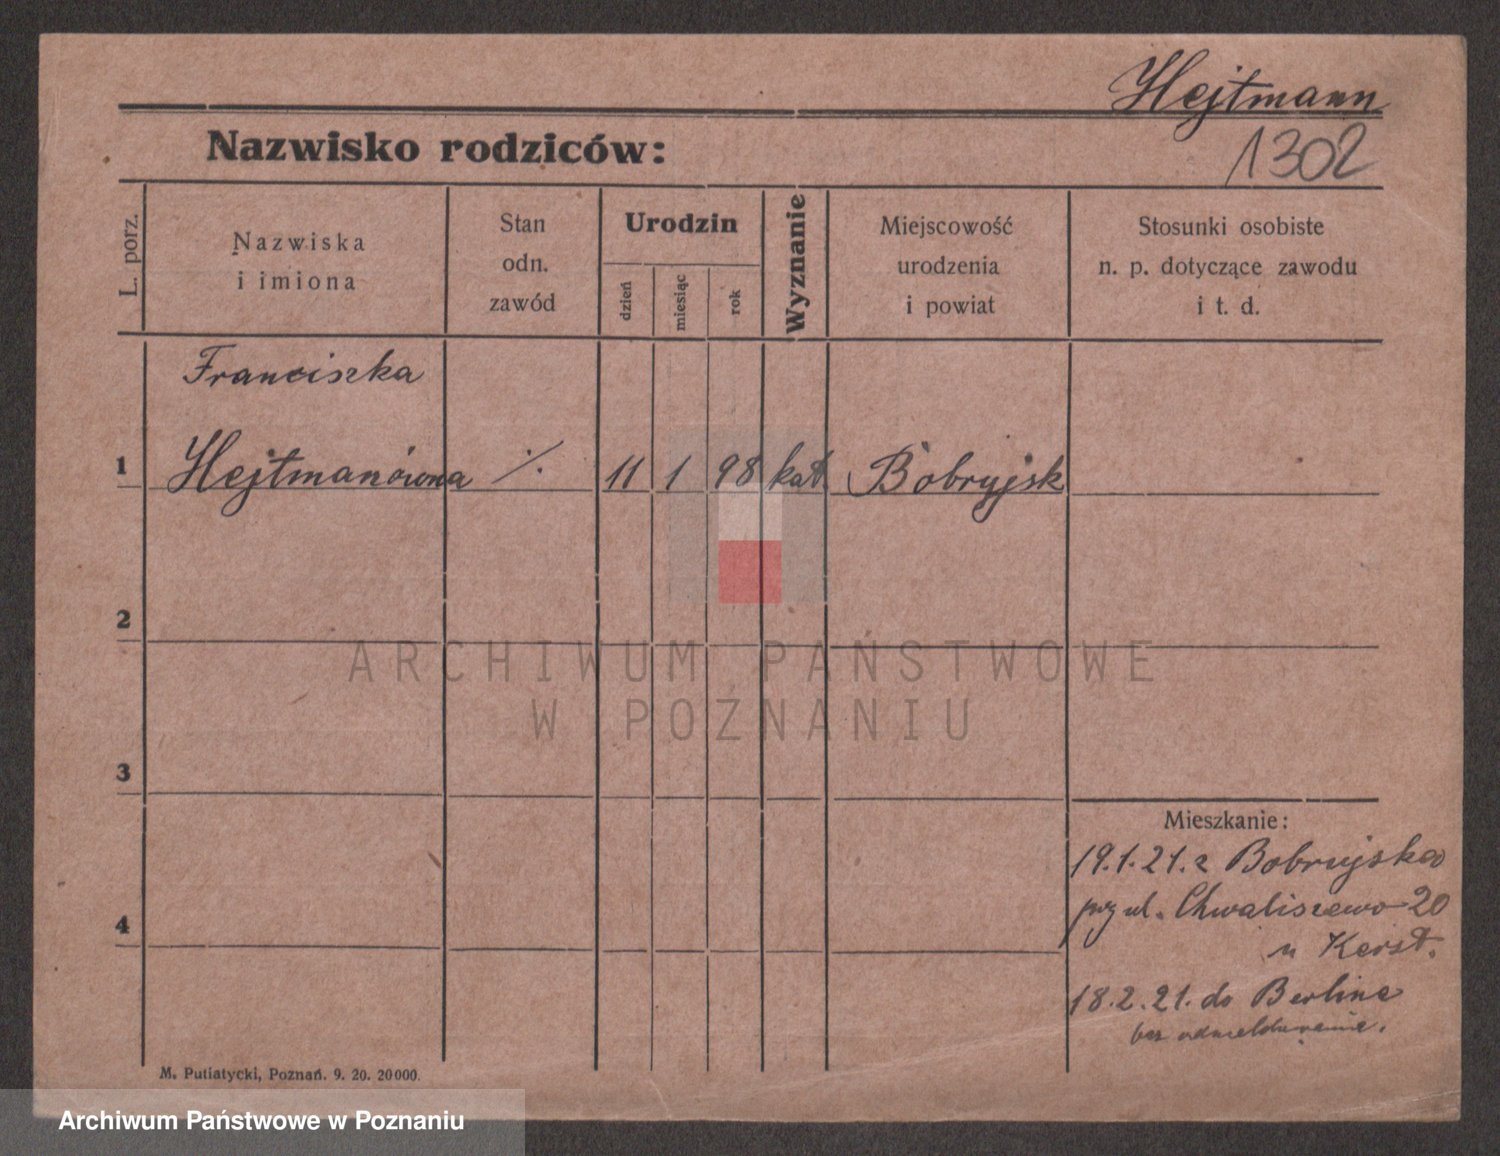 Hejtmann
1302
Nazwisko rodziców:
L. porz.
Nazwiska
i imiona
Stan
odn.
zawód
Urodzin
dzień
miesiąc
rok
Wyznanie
Miejscowość
urodzenia
i powiat
Stosunki osobiste
n. p. dotyczące zawodu
i t. d.
Franciszka
1 Hejtmanówna ./. 11 1 98 kat Bobryjsk
2
3
4
Mieszkanie:
19.1.21. z Bobrujska
przy ul. Chwaliszewo 20
u Kerst.
18.2.21. do Berlina
bez odmeldowania.
M. Putiatycki, Poznań. 9. 20. 20000.
ARCHIWUM PAŃSTWOWE
W POZNANIU
Archiwum Państwowe w Poznaniu